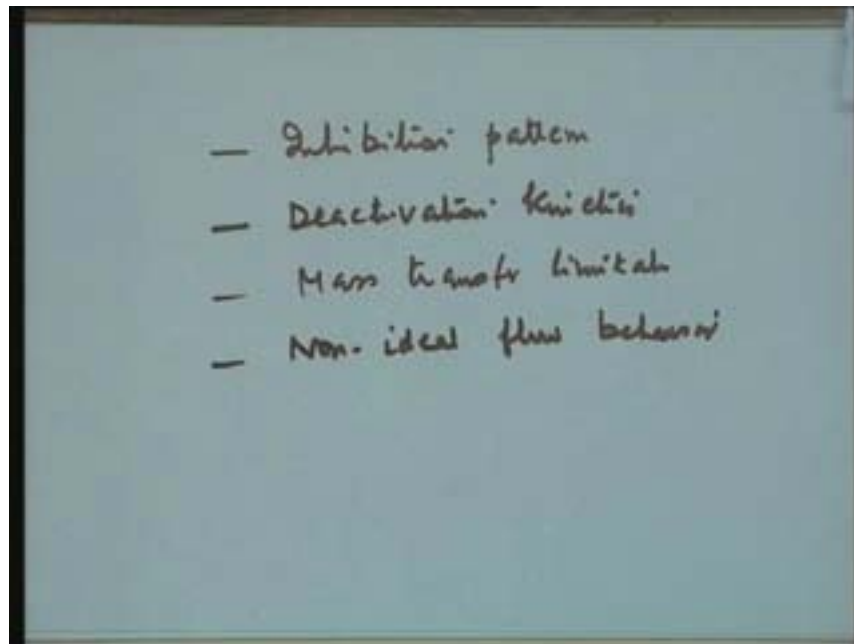 — Inhibition pattern
— Deactivation Kinetics
— Mass transfer limitati
— Non-ideal flow behavior